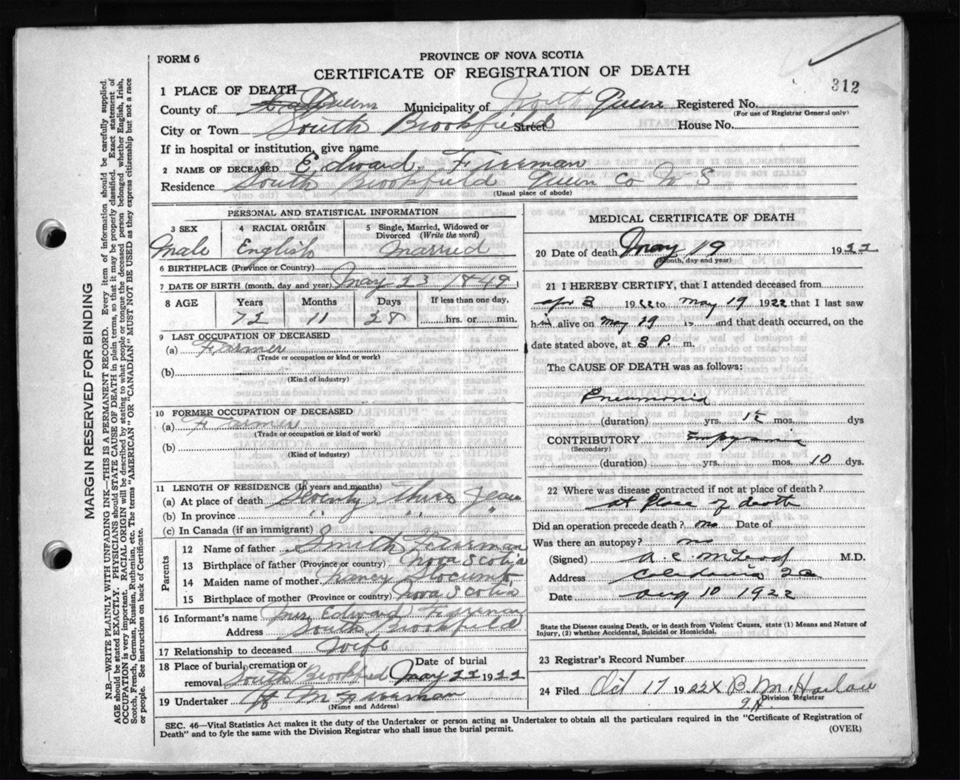 FORM 6
PROVINCE OF NOVA SCOTIA
CERTIFICATE OF REGISTRATION OF DEATH
312
1 PLACE OF DEATH
County of Queens Municipality of North Queens Registered No.
(For use of Registrar General only)
City or Town South Brookfield Street House No.
If in hospital or institution, give name
2 NAME OF DECEASED Edward Freeman
Residence South Brookfield Queen Co N S
(Usual place of abode)
PERSONAL AND STATISTICAL INFORMATION
3 SEX 4 RACIAL ORIGIN 5 Single, Married, Widowed or Divorced (Write the word)
Male English Married
6 BIRTHPLACE (Province or Country)
7 DATE OF BIRTH (month, day and year) May 22 1849
8 AGE Years Months Days If less than one day,
72 11 28 hrs. or min.
9 LAST OCCUPATION OF DECEASED
(a) Farmer
(Trade or occupation or kind or work)
(b)
(Kind of industry)
10 FORMER OCCUPATION OF DECEASED
(a) Farmer
(Trade or occupation or kind of work)
(b)
(Kind of industry)
11 LENGTH OF RESIDENCE (In years and months)
(a) At place of death Seventy three Years
(b) In province " " "
(c) In Canada (if an immigrant)
Parents
12 Name of father Smith Freeman
13 Birthplace of father (Province or country) Nova Scotia
14 Maiden name of mother Nancy
15 Birthplace of mother (Province or country) Nova Scotia
16 Informant's name Mrs Edward Freeman
Address South Brookfield
17 Relationship to deceased Wife
18 Place of burial, cremation or removal South Brookfield Date of burial May 22 1922
19 Undertaker Freeman
(Name and Address)
MEDICAL CERTIFICATE OF DEATH
20 Date of death May 19 1922
(Month, day and year)
21 I HEREBY CERTIFY, that I attended deceased from
Apr 3 1922 to May 19 1922 that I last saw
him alive on May 19 19 and that death occurred, on the
date stated above, at 3 P. m.
The CAUSE OF DEATH was as follows:
Pneumonia
(duration) yrs. mos. dys
CONTRIBUTORY Empyemia
(Secondary)
(duration) yrs. mos. 10 dys.
22 Where was disease contracted if not at place of death?
at place of death
Did an operation precede death? no Date of
Was there an autopsy? no
(Signed) A. C. McLeod M.D.
Address Caledonia
Date Aug 10 1922
State the Disease causing Death, or in death from Violent Causes, state (1) Means and Nature of Injury, (2) whether Accidental, Suicidal or Homicidal.
23 Registrar's Record Number
24 Filed Oct 17 1922 B. M. Harlow
Division Registrar
SEC. 46—Vital Statistics Act makes it the duty of the Undertaker or person acting as Undertaker to obtain all the particulars required in the "Certificate of Registration of
Death" and to fyle the same with the Division Registrar who shall issue the burial permit. (OVER)
MARGIN RESERVED FOR BINDING
N.B.—WRITE PLAINLY WITH UNFADING INK—THIS IS A PERMANENT RECORD. Every item of information should be carefully supplied.
AGE should be stated EXACTLY. PHYSICIANS should STATE CAUSE OF DEATH in plain terms, so that it may be properly classified. Exact statement of
OCCUPATION is very important. RACIAL ORIGIN will be described by stating to what people or tongue the deceased person belonged whether English, Irish,
Scotch, French, German, Russian, Ruthenian, etc. The terms "AMERICAN" OR "CANADIAN" MUST NOT BE USED as they express citizenship but not a race
or people. See instructions on back of Certificate.